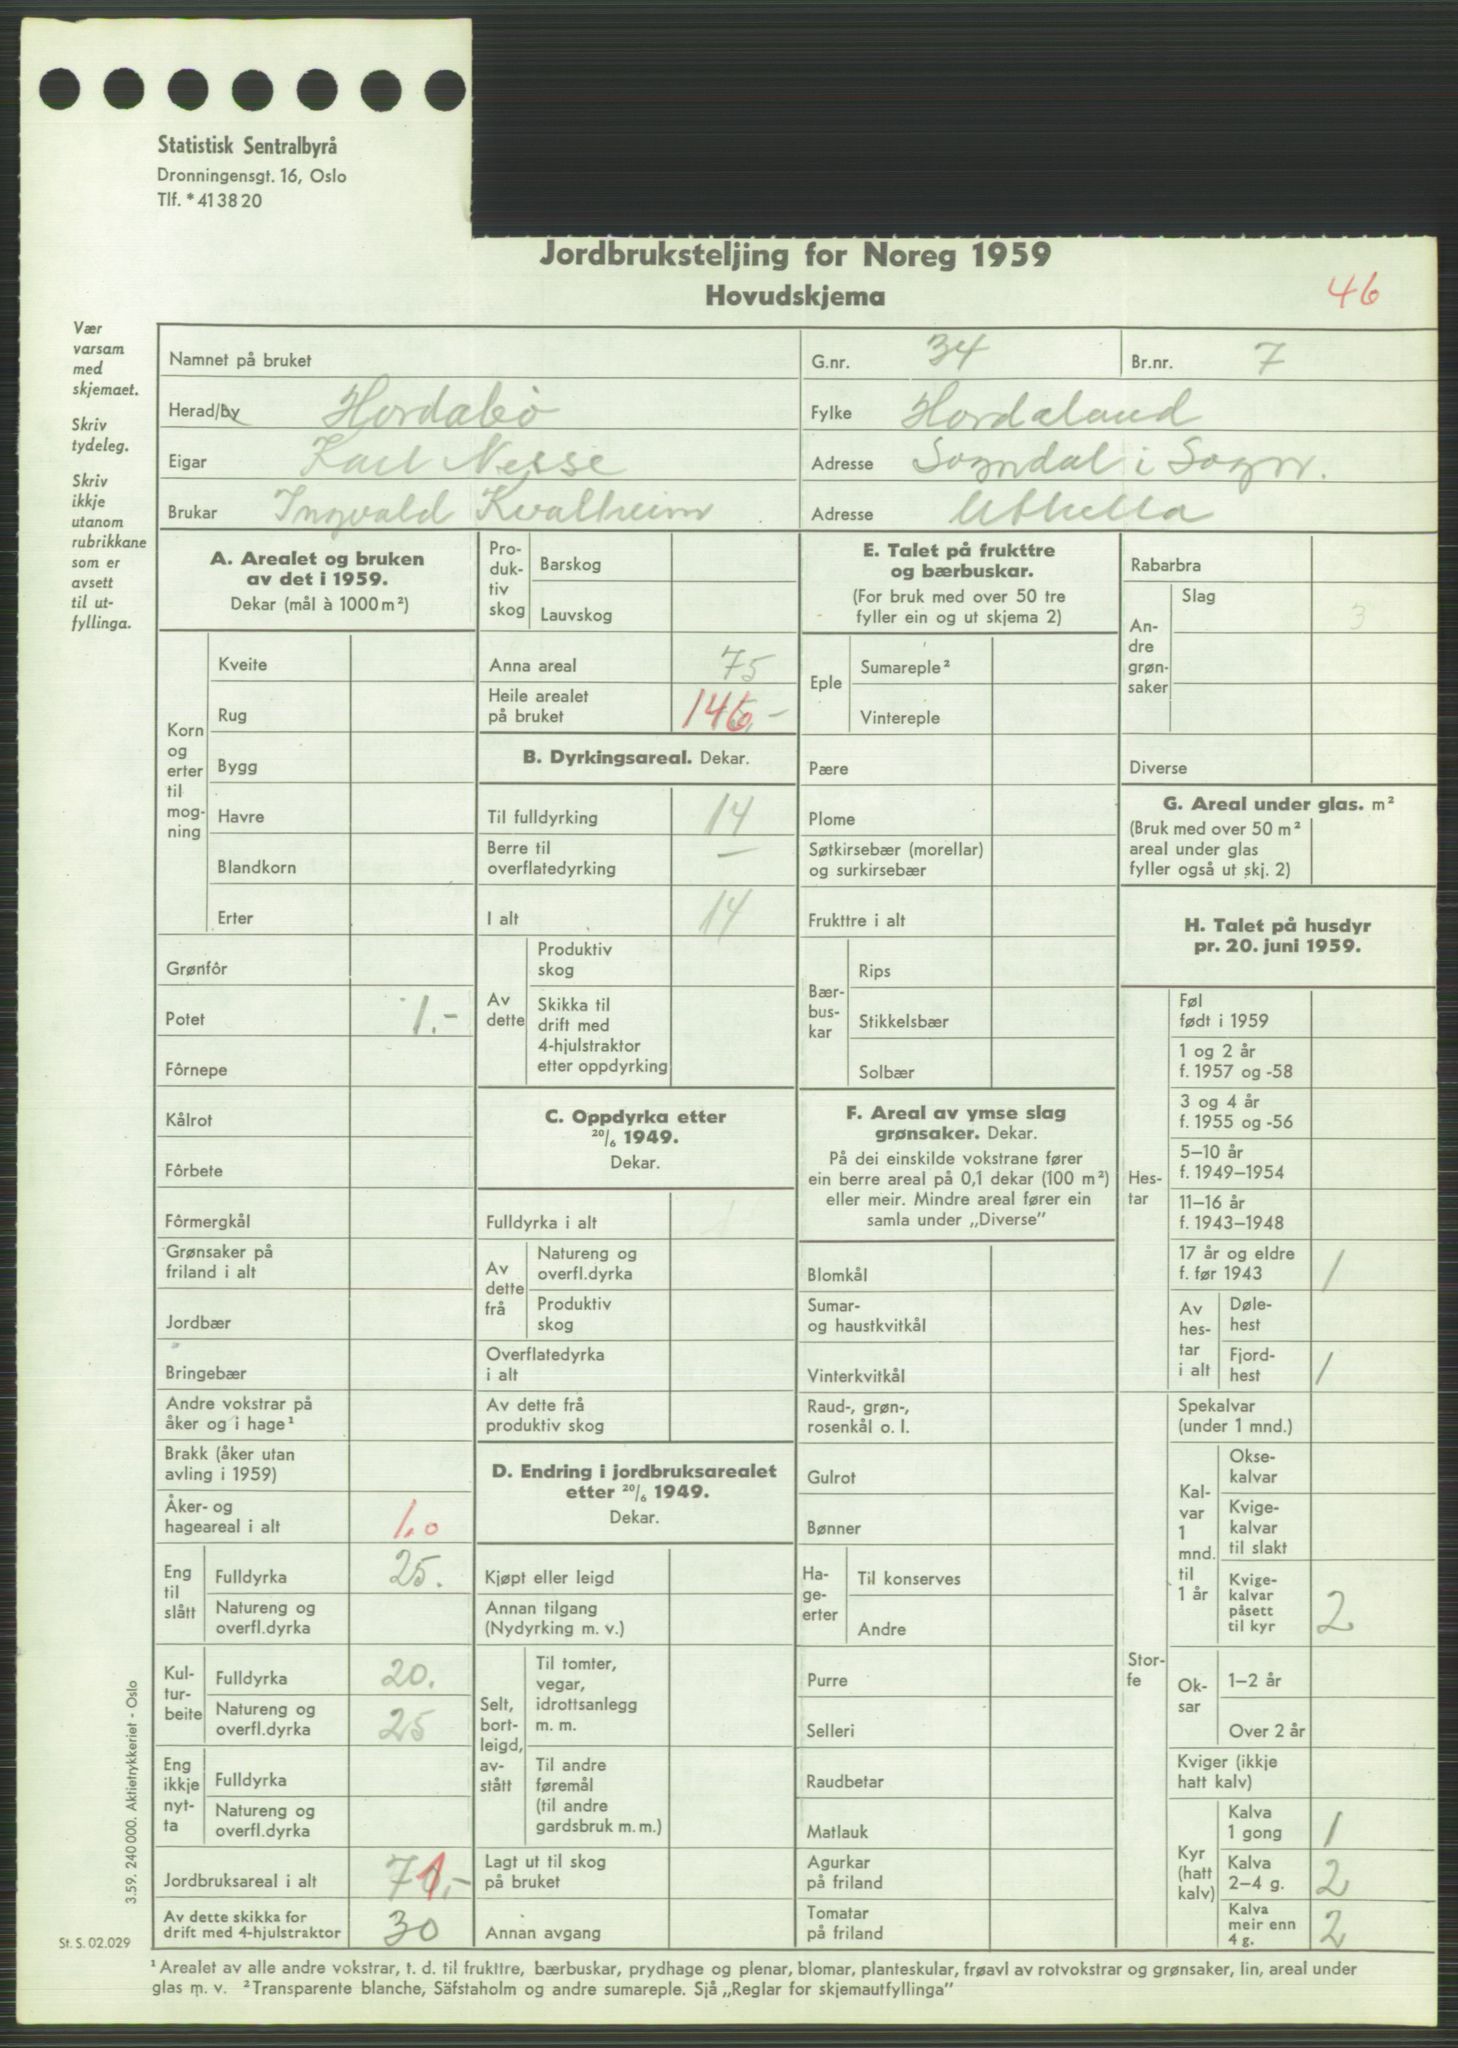 Statistisk Sentralbyrå
Dronningensgt. 16, Oslo
Tlf. * 41 38 20
Jordbruksteljing for Noreg 1959
Hovudskjema
46
Vær
varsam
med
skjemaet.
Skriv
tydeleg.
Skriv
ikkje
utanom
rubrikkane
som er
avsett
til ut-
fyllinga.
Namnet på bruket
G.nr. 34
Br.nr. 7
Herad/by Hordabø
Fylke Hordaland
Eigar Karl Nesse
Adresse Sogndal i Sogn.
Brukar Ingvald Kvalheim
Adresse
A. Arealet og bruken
av det i 1959.
Dekar (mål à 1000 m²)
Korn
og
erter
til
mog-
ning
Kveite
Rug
Bygg
Havre
Blandkorn
Erter
Grønfôr
Potet 1.-
Fôrnepe
Kålrot
Fôrbete
Fôrmergkål
Grønsaker på
friland i alt
Jordbær
Bringebær
Andre vokstrar på
åker og i hage¹
Brakk (åker utan
avling i 1959)
Åker- og
hageareal i alt 1,0
Eng
til
slått
Fulldyrka 25.
Natureng og
overfl.dyrka
Kul-
tur-
beite
Fulldyrka 20.
Natureng og
overfl.dyrka 25
Eng
ikkje
nyt-
ta
Fulldyrka
Natureng og
overfl.dyrka
Jordbruksareal i alt 71,-
Av dette skikka for
drift med 4-hjulstraktor 30
Pro-
duk-
tiv
skog
Barskog
Lauvskog
Anna areal 75
Heile arealet
på bruket 146,-
B. Dyrkingsareal. Dekar.
Til fulldyrking 14
Berre til
overflatedyrking —
I alt 14
Av
dette
Produktiv
skog
Skikka til
drift med
4-hjulstraktor
etter oppdyrking
C. Oppdyrka etter
20/6 1949.
Dekar.
Fulldyrka i alt
Av
dette
frå
Natureng og
overfl.dyrka
Produktiv
skog
Overflatedyrka
i alt
Av dette frå
produktiv skog
D. Endring i jordbruksarealet
etter 20/6 1949.
Dekar.
Kjøpt eller leigd
Annan tilgang
(Nydyrking m. v.)
Selt,
bort-
leigd,
av-
stått
Til tomter,
vegar,
idrottsanlegg
m. m.
Til andre
føremål
(til andre
gardsbruk m. m.)
Lagt ut til skog
på bruket
Annan avgang
E. Talet på frukttre
og bærbuskar.
(For bruk med over 50 tre
fyller ein og ut skjema 2)
Eple
Sumareple²
Vintereple
Pære
Plome
Søtkirsebær (morellar)
og surkirsebær
Frukttre i alt
Bær-
bus-
kar
Rips
Stikkelsbær
Solbær
F. Areal av ymse slag
grønsaker. Dekar.
På dei einskilde vokstrane fører
ein berre areal på 0,1 dekar (100 m²)
eller meir. Mindre areal fører ein
samla under „Diverse"
Blomkål
Sumar-
og haustkvitkål
Vinterkvitkål
Raud-, grøn-,
rosenkål o. l.
Gulrot
Bønner
Ha-
ge-
erter
Til konserves
Andre
Purre
Selleri
Raudbetar
Matlauk
Agurkar
på friland
Tomatar
på friland
Rabarbra
An-
dre
grøn-
saker
Slag
3
Diverse
G. Areal under glas. m²
(Bruk med over 50 m²
areal under glas
fyller også ut skj. 2)
H. Talet på husdyr
pr. 20. juni 1959.
Hes-
tar
Føl
født i 1959
1 og 2 år
f. 1957 og -58
3 og 4 år
f. 1955 og -56
5–10 år
f. 1949–1954
11–16 år
f. 1943–1948
17 år og eldre
f. før 1943 1
Av
hes-
tar
i alt
Døle-
hest
Fjord-
hest 1
Stor-
fe
Spekalvar
(under 1 mnd.)
Kal-
var
1
mnd.
til
1 år
Okse-
kalvar
Kvige-
kalvar
til slakt
Kvige-
kalvar
påsett
til kyr 2
Ok-
sar
1–2 år
Over 2 år
Kviger (ikkje
hatt kalv)
Kyr
(hatt
kalv)
Kalva
1 gong 1
Kalva
2–4 g. 2
Kalva
meir enn
4 g. 2
3.59. 240 000. Aktietrykkeriet - Oslo
St. S. 02.029
¹ Arealet av alle andre vokstrar, t. d. til frukttre, bærbuskar, prydhage og plenar, blomar, planteskular, frøavl av rotvokstrar og grønsaker, lin, areal under
glas m. v. ² Transparente blanche, Säfstaholm og andre sumareple. Sjå „Reglar for skjemautfyllinga"